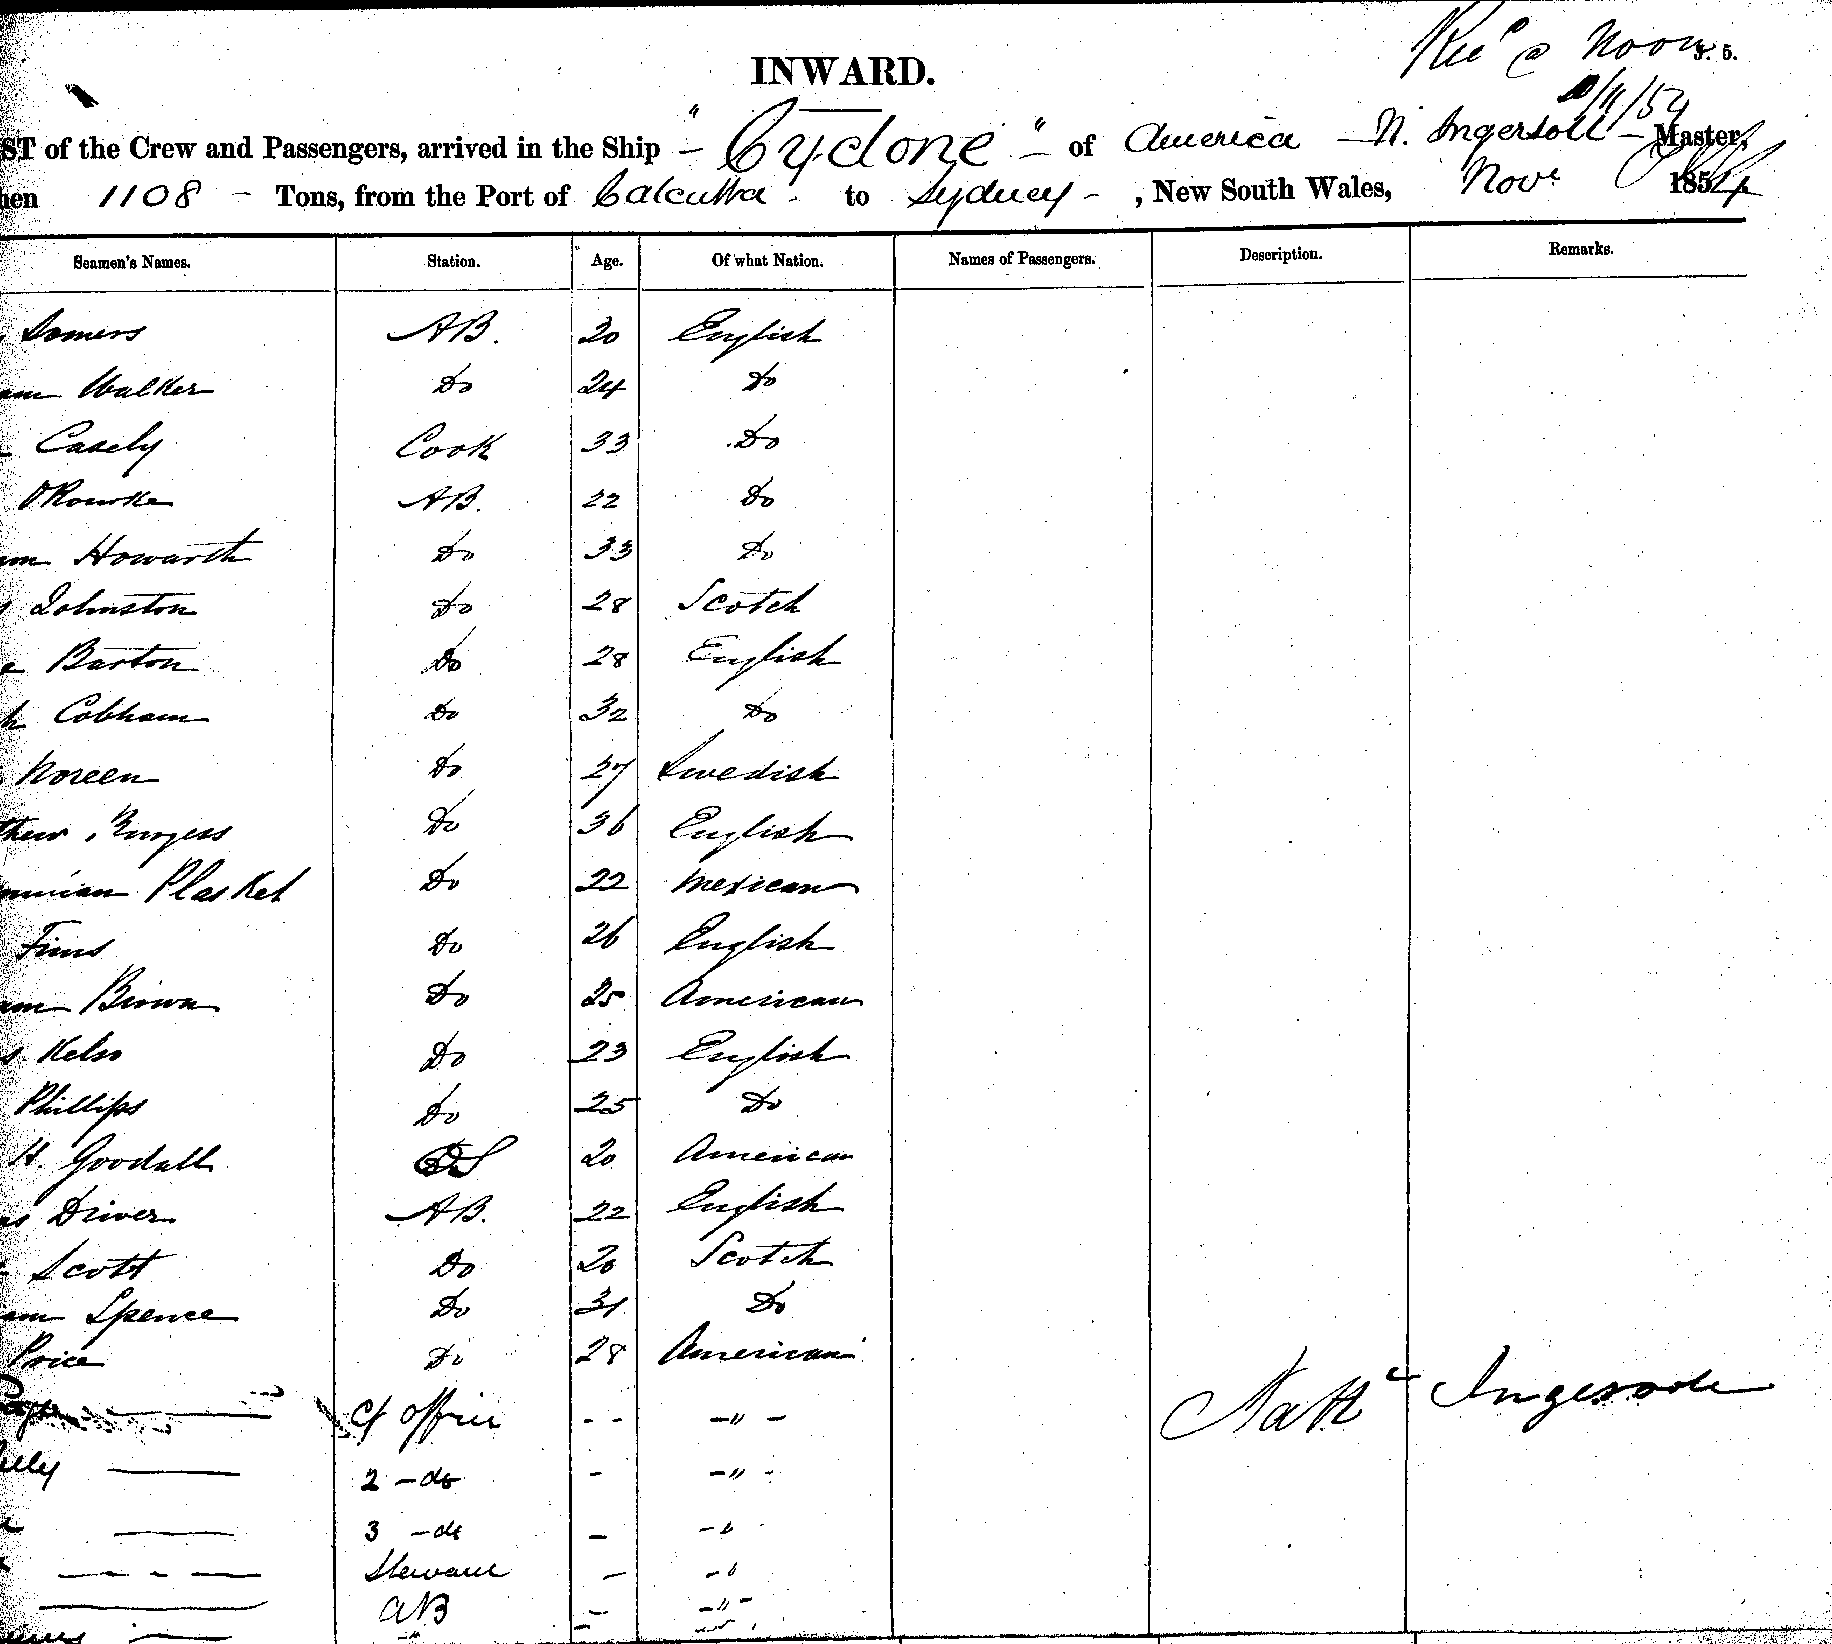 Recd @ Noon
J. 5.
INWARD.
/11/54
ST of the Crew and Passengers, arrived in the Ship "Cyclone" of America N. Ingersoll Master,
hen 1108 Tons, from the Port of Calcutta to Sydney, New South Wales, Novr 1854
Seamen's Names. Station. Age. Of what Nation. Names of Passengers. Description. Remarks.
Somers AB. 20 English
am Walker Do 24 Do
Casely Cook 33 Do
O'Rourke AB. 22 Do
am Howarth Do 33 Do
s Johnston Do 28 Scotch
e Barton Do 28 English
h Cobham Do 32 Do
Noreen Do 27 Swedish
thew Burgess Do 36 English
Plasket Do 22 Mexican
Finns Do 26 English
am Brown Do 25 American
s Kelso Do 23 English
Phillips Do 25 Do
H. Goodall OS 20 American
as Driver AB. 22 English
Scott Do 20 Scotch
am Spence Do 31 Do
Price Do 28 American
Cf Officer - - - " -
Nathl Ingersole
elly 2 - do - - " -
3 - do - - "
Steward - - "
AB - - " -